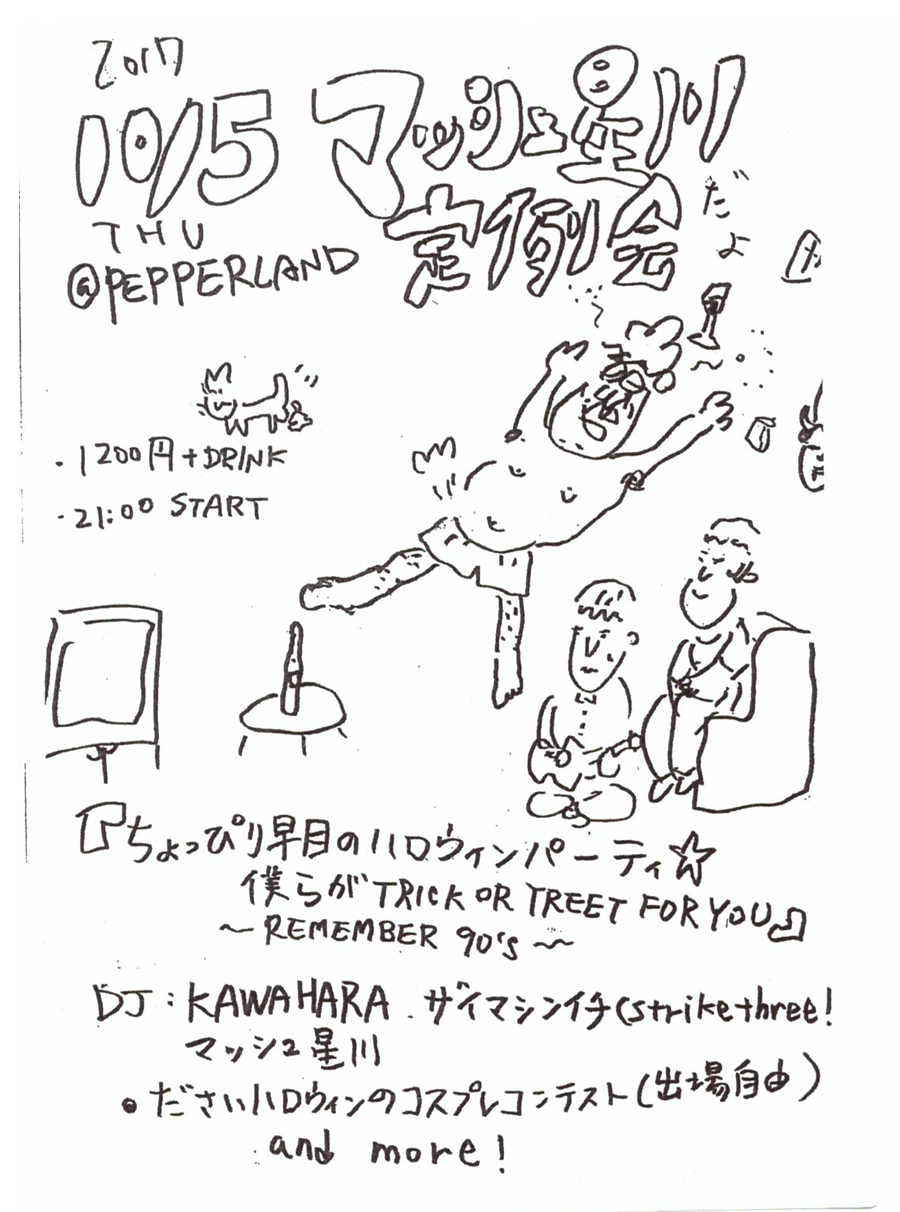 2017
10/5 マッシュ星川
THU 定例会 だよ
@PEPPERLAND
・1200円+DRINK
・21:00 START
『ちょっぴり早目のハロウィンパーティ☆
僕らがTRICK OR TREET FOR YOU』
〜REMEMBER 90's〜
DJ:KAWAHARA.ザイマシンイチ(strikethree!
マッシュ星川
●ださいハロウィンのコスプレコンテスト(出場自由)
and more!